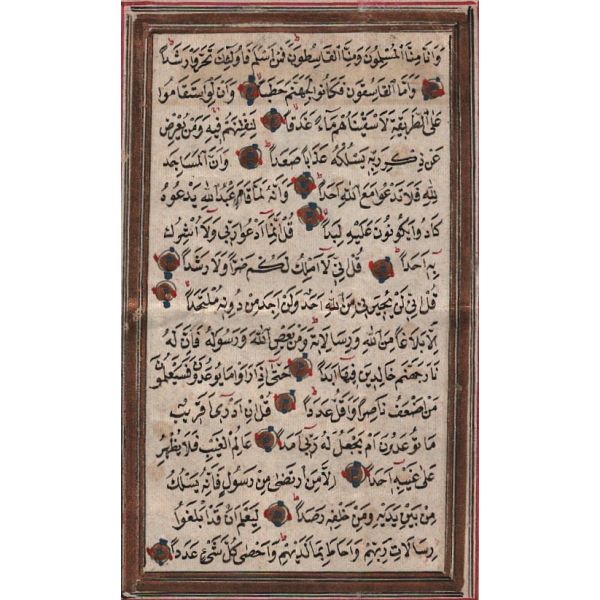 وَاَنَّا مِنَّا الْمُسْلِمُونَ وَمِنَّا الْقَاسِطُونَ فَمَنْ اَسْلَمَ فَاُولٰٓئِكَ تَحَرَّوْا رَشَدًا
وَاَمَّا الْقَاسِطُونَ فَكَانُوا لِجَهَنَّمَ حَطَبًا وَاَنْ لَوِ اسْتَقَامُوا
عَلَى الطَّرِيقَةِ لَاَسْقَيْنَاهُمْ مَآءً غَدَقًا لِنَفْتِنَهُمْ فِيهِ وَمَنْ يُعْرِضْ
عَنْ ذِكْرِ رَبِّهِ يَسْلُكْهُ عَذَابًا صَعَدًا وَاَنَّ الْمَسَاجِدَ
لِلّٰهِ فَلَا تَدْعُوا مَعَ اللّٰهِ اَحَدًا وَاَنَّهُ لَمَّا قَامَ عَبْدُ اللّٰهِ يَدْعُوهُ
كَادُوا يَكُونُونَ عَلَيْهِ لِبَدًا قُلْ اِنَّمَا اَدْعُوا رَبِّي وَلَا اُشْرِكُ
بِهِ اَحَدًا قُلْ اِنِّي لَا اَمْلِكُ لَكُمْ ضَرًّا وَلَا رَشَدًا
قُلْ اِنِّي لَنْ يُجِيرَنِي مِنَ اللّٰهِ اَحَدٌ وَلَنْ اَجِدَ مِنْ دُونِهِ مُلْتَحَدًا
اِلَّا بَلَاغًا مِنَ اللّٰهِ وَرِسَالَاتِهِ وَمَنْ يَعْصِ اللّٰهَ وَرَسُولَهُ فَاِنَّ لَهُ
نَارَ جَهَنَّمَ خَالِدِينَ فِيهَا اَبَدًا حَتّٰى اِذَا رَاَوْا مَا يُوعَدُونَ فَسَيَعْلَمُونَ
مَنْ اَضْعَفُ نَاصِرًا وَاَقَلُّ عَدَدًا قُلْ اِنْ اَدْرِي اَقَرِيبٌ
مَا تُوعَدُونَ اَمْ يَجْعَلُ لَهُ رَبِّي اَمَدًا عَالِمُ الْغَيْبِ فَلَا يُظْهِرُ
عَلٰى غَيْبِهِ اَحَدًا اِلَّا مَنِ ارْتَضٰى مِنْ رَسُولٍ فَاِنَّهُ يَسْلُكُ
مِنْ بَيْنِ يَدَيْهِ وَمِنْ خَلْفِهِ رَصَدًا لِيَعْلَمَ اَنْ قَدْ اَبْلَغُوا
رِسَالَاتِ رَبِّهِمْ وَاَحَاطَ بِمَا لَدَيْهِمْ وَاَحْصٰى كُلَّ شَيْءٍ عَدَدًا